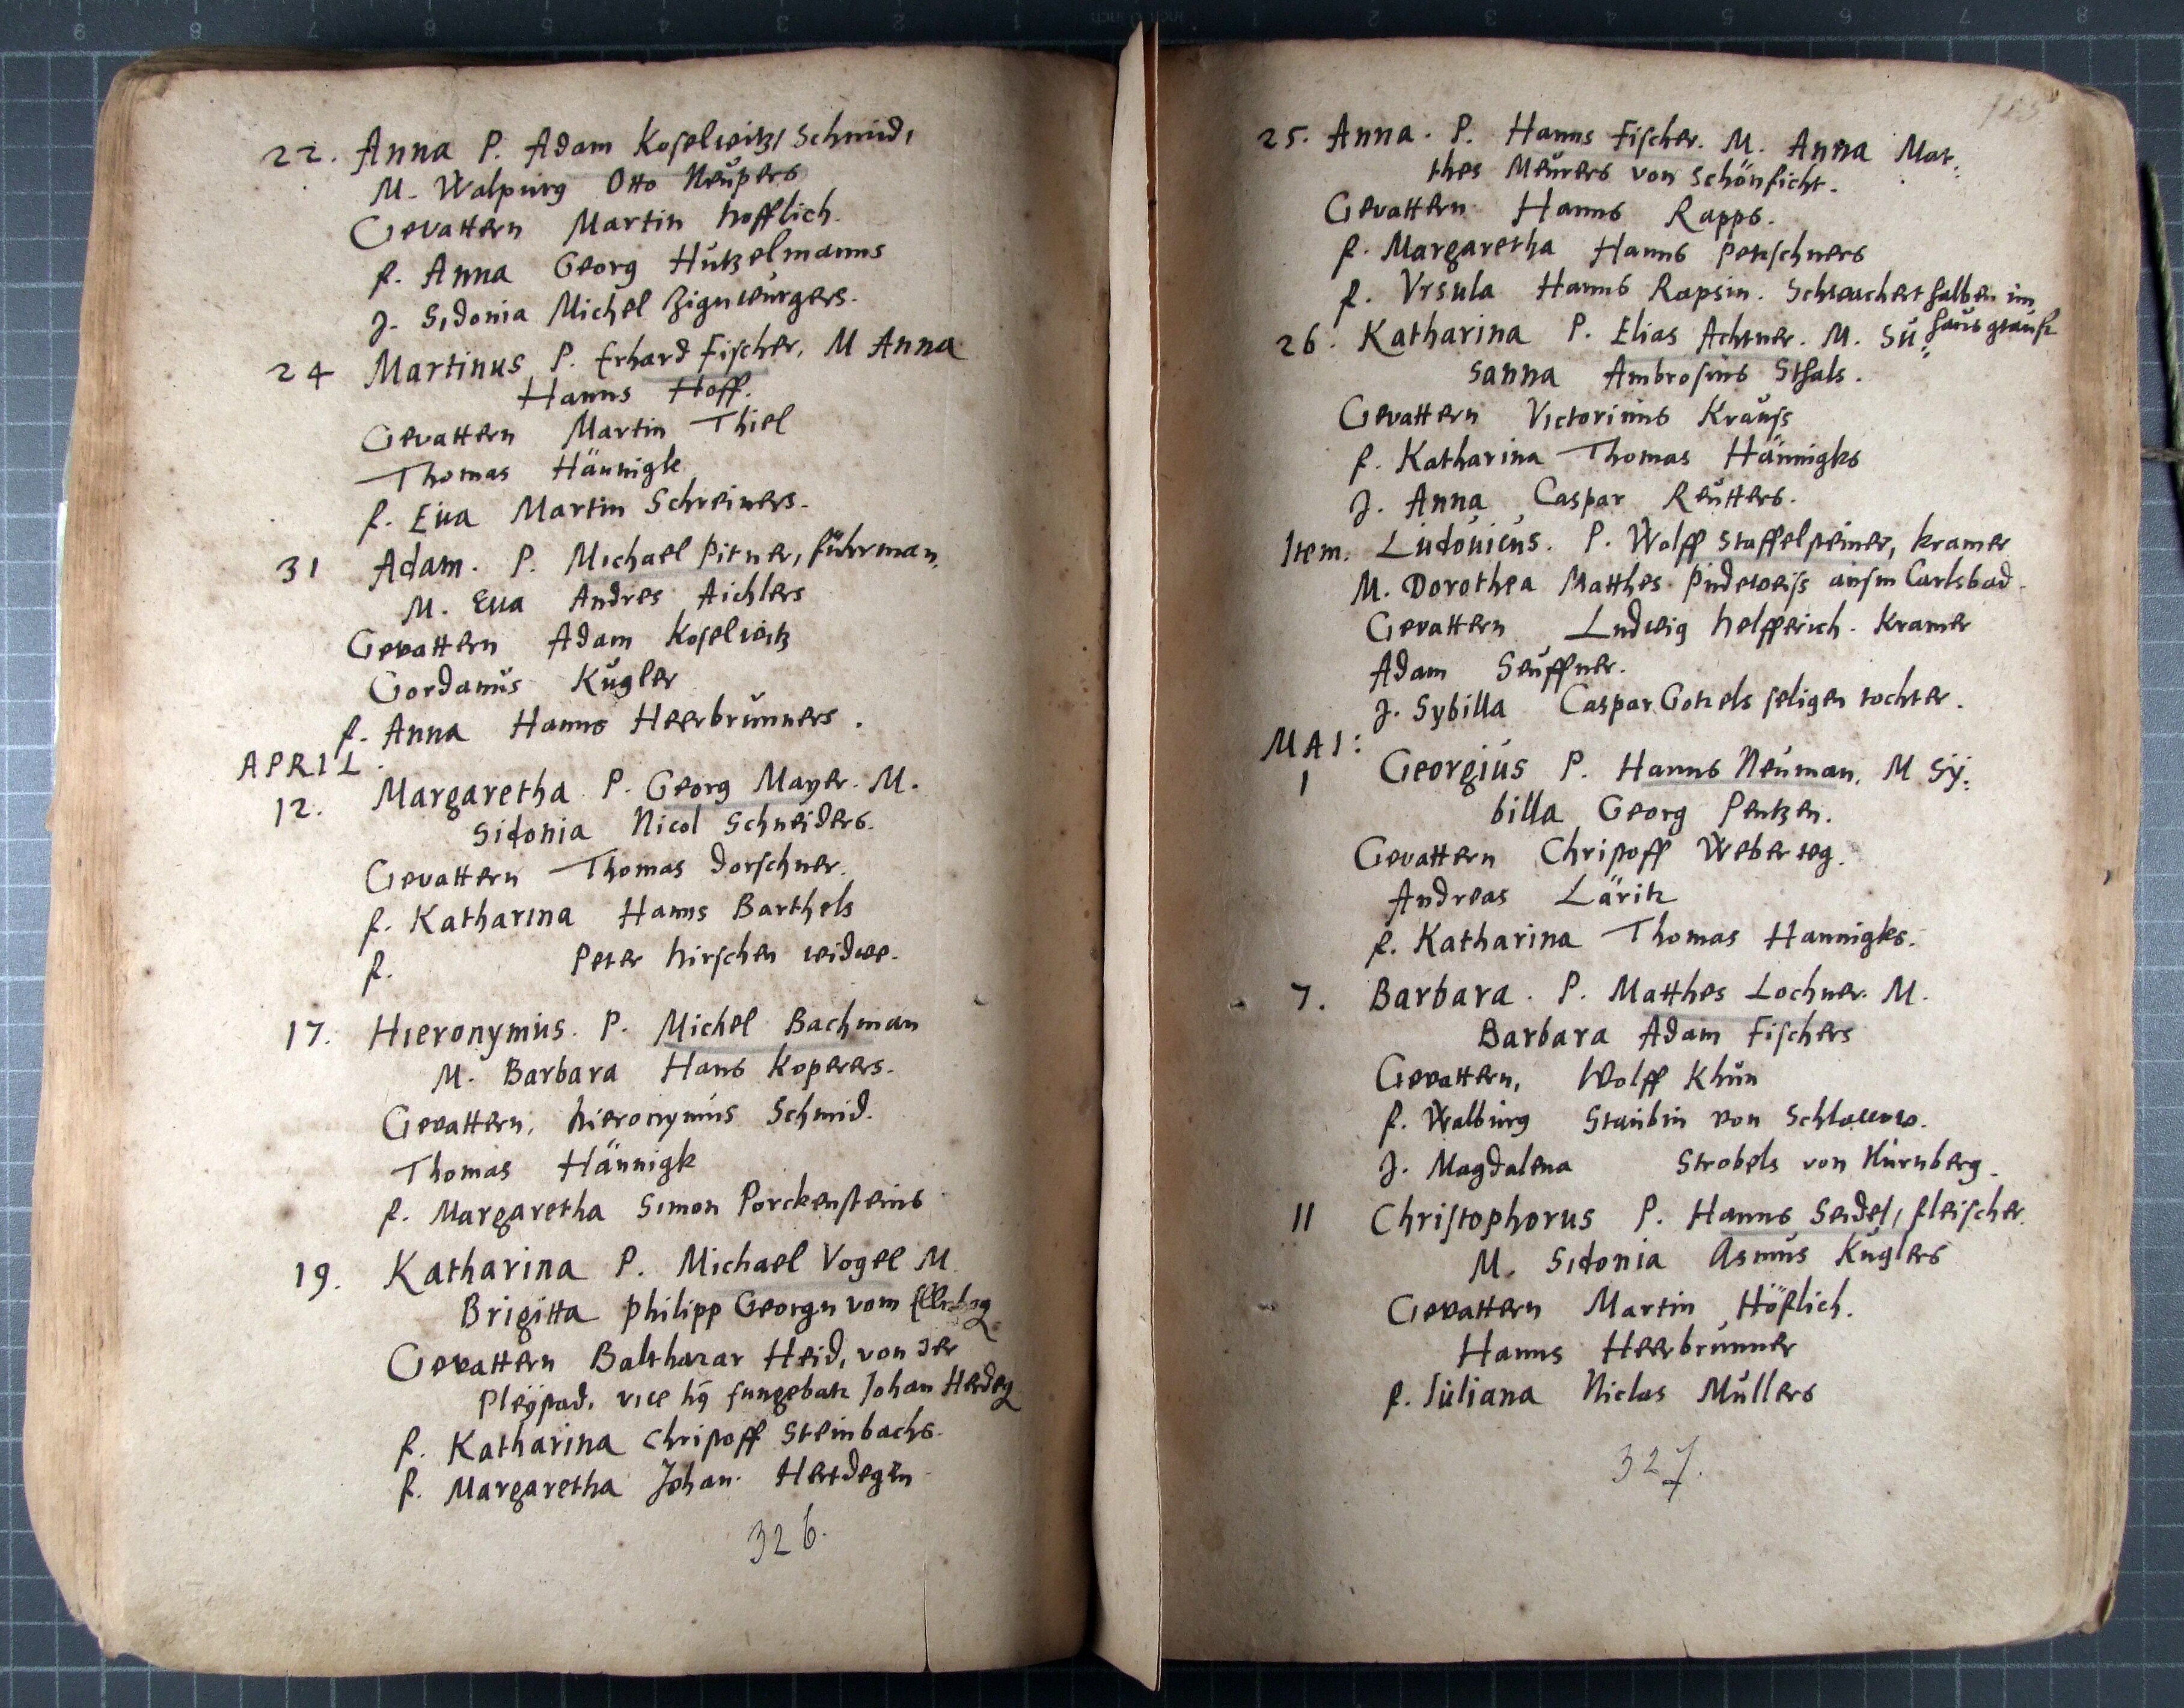 22. Anna P. Adam Koselwitz, Schmid,
M. Walpurg Otto Neupers
Gevattern Martin hofflich.
f. Anna Georg Hutzelmanns
J. Sidonia Michel Zignwurgers.
24 Martinus P. Erhard Fischer, M Anna
Hanns Hoff.
Gevattern Martin Thiel
Thomas Hännigk
f. Eua Martin Schreiners.
31 Adam. P. Michael Pitner, fuhrman,
M. Eua Andres Aichlers
Gevattern Adam Koselwitz
Gordanus Kugler
f. Anna Hanns Heerbrunners.
APRIL.
12. Margaretha P. Georg Mayer. M.
Sidonia Nicol Schneiders.
Gevattern Thomas Dorschner.
f. Katharina Hanns Barthels
f. Peter hirschen widwe.
17. Hieronymus. P. Michel Bachman
M. Barbara Hans Koperers.
Gevattern, hieronymus Schmid.
Thomas Hännigk
f. Margaretha Simon Porckensteins
19. Katharina P. Michael Vogel M.
Brigitta philipp Georgn vom
Gevattern Balthazar Heid, von der
Pleystad, vice Johan Herdeg
f. Katharina Christoff Steinbachs.
f. Margaretha Johan. Herdegen
326.
25. Anna. P. Hanns Fischer. M. Anna Mat:
thes Meurers von Schönficht.
Gevattern Hanns Rapps.
f. Margaretha Hanns Petschners
f. Vrsula Hanns Rapsin. Schwacheit halben im
haus getauft
26. Katharina P. Elias Achtner. M. Su:
sanna Ambrosius Sthals.
Gevattern Victorinus Krauss
f. Katharina Thomas Hännigks
J. Anna Caspar Reutters.
Item. Ludouicus. P. Wolff Staffelsteiner, kramer
M. Dorothea Matthes Pindeweiss ausm Carlsbad.
Gevattern Ludwig helfferich. Kramer
Adam Seuffner.
J. Sybilla Caspar Gotzels seligen tochter.
MAI:
1 Georgius P. Hanns Neuman, M Sy:
billa Georg Pentzen.
Gevattern Christoff Weber
Andreas Läritz
f. Katharina Thomas Hannigks.
7. Barbara. P. Matthes Lochner. M.
Barbara Adam Fischers
Gevattern, Wolff Khun
f. Walburg Staubin von
J. Magdalena Strobels von Nurnberg.
11 Christophorus P. Hanns Seidel, fleischer.
M. Sidonia Asmus Kuglers
Gevattern Martin Höflich.
Hanns Heerbrunner
f. Iuliana Niclas Mullers
327.